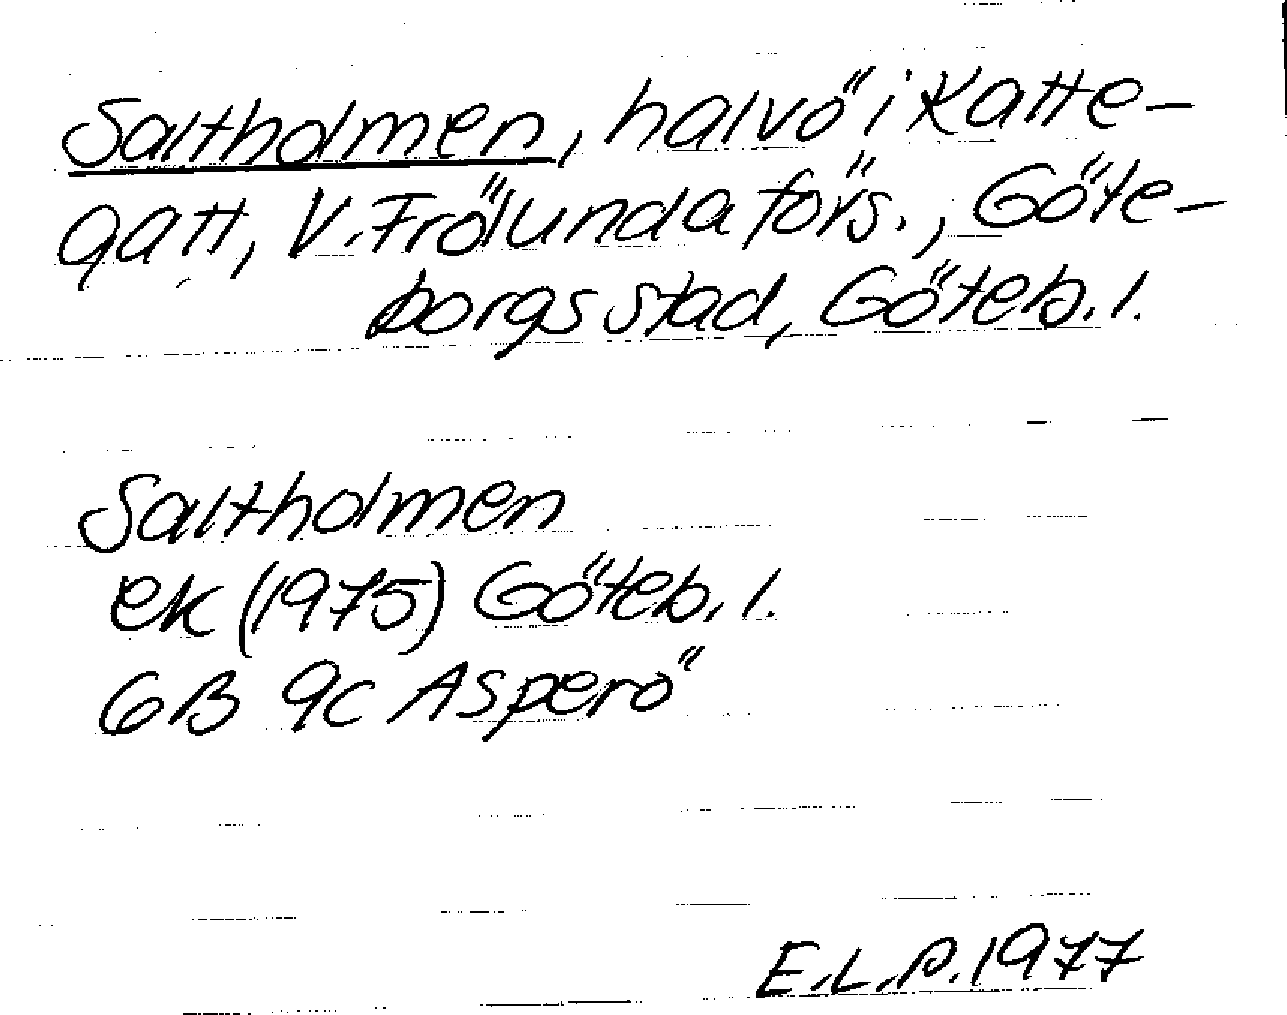 Saltholmen, halvö i Katte-
gatt, V. Frölunda förs., Göte-
borgs stad, Göteb. l.
Saltholmen
ek (1975) Göteb. l.
6B 9c Asperö
E.L.P. 1977